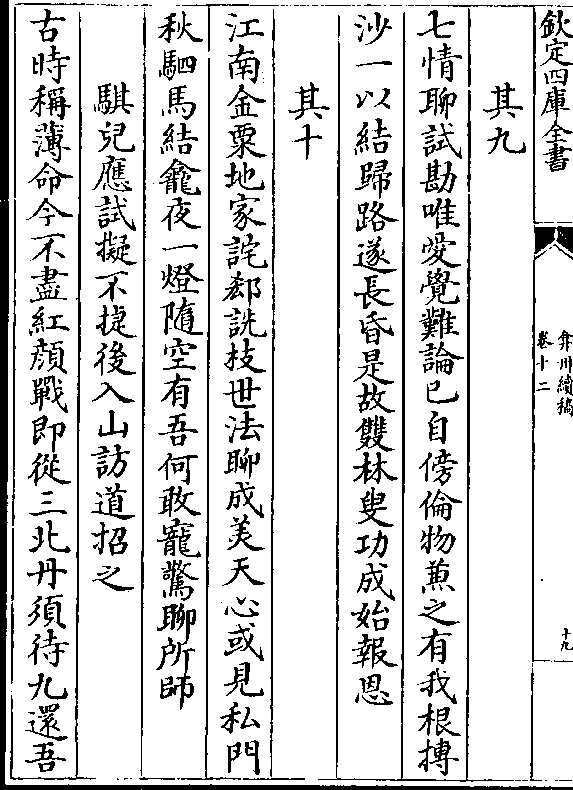 欽定四庫全書
弇州續稿
卷十二
十九
其九
七情聊試勘唯愛覺難論已自傍倫物兼之有我根摶
沙一以結歸路遂長昏是故雙林叟功成始報恩
其十
江南金粟地家詫郄詵枝世法聊成美天心或見私門
秋駟馬結龕夜一燈隨空有吾何敢寵驚聊所師
騏兒應試擬不㨗後入山訪道招之
古時稱薄命今不盡紅顔戰即從三北丹須待九還吾